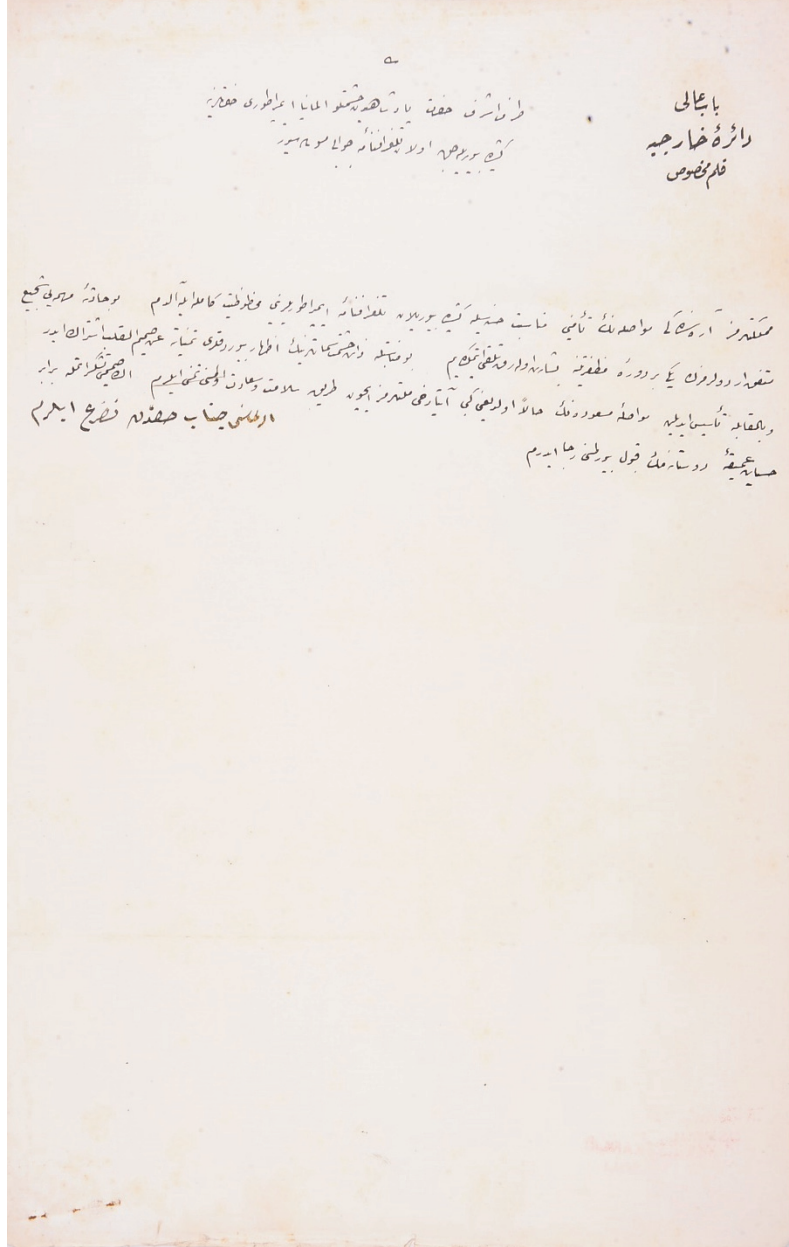 باب عالی
دائرهٔ خارجیه
قلم مخصوص
طرف اشرف حضرت پادشاهیدن حشمتلو المانیا ایمراطوری حضرتلرینه
کشیده بیوریله‌جق اولان تلغرافنامهٔ جوابی مسوده‌سیدر
مملکتلرمز آره‌سنده‌کی مواصله‌نك تأمینی مناسبت حسنه‌سیله کشیده بیوریلان تلغرافنامهٔ ایمراطوریلرینی محظوظیت کامله ایله آلدم بو حادثهٔ مهمه‌یی شجیع
متفق اردولرمزك یکی بر دورهٔ مظفریتنه بشارت اوله‌رق تلقی ایتمکده‌یم بو مناسبتله ذات حشمتسماتلرینك اظهار بیوردقلری تمنیاته عن صمیم القلب اشتراك ایدر
وبالمقابله تأسیس ایدیلن مواصلهٔ مسعوده‌نك حالاً اولدیغی کبی آتیاً دخی ملتلرمز ایچون طریق سلامت وسعادت اولمسنی تمنی ایلرم الك صمیمی تشکراتمله برابر
اولمسنی جناب حقدن تضرع ایلرم
حسیات عمیقهٔ دوستانه‌مك قبول بیورلمسنی رجا ایدرم